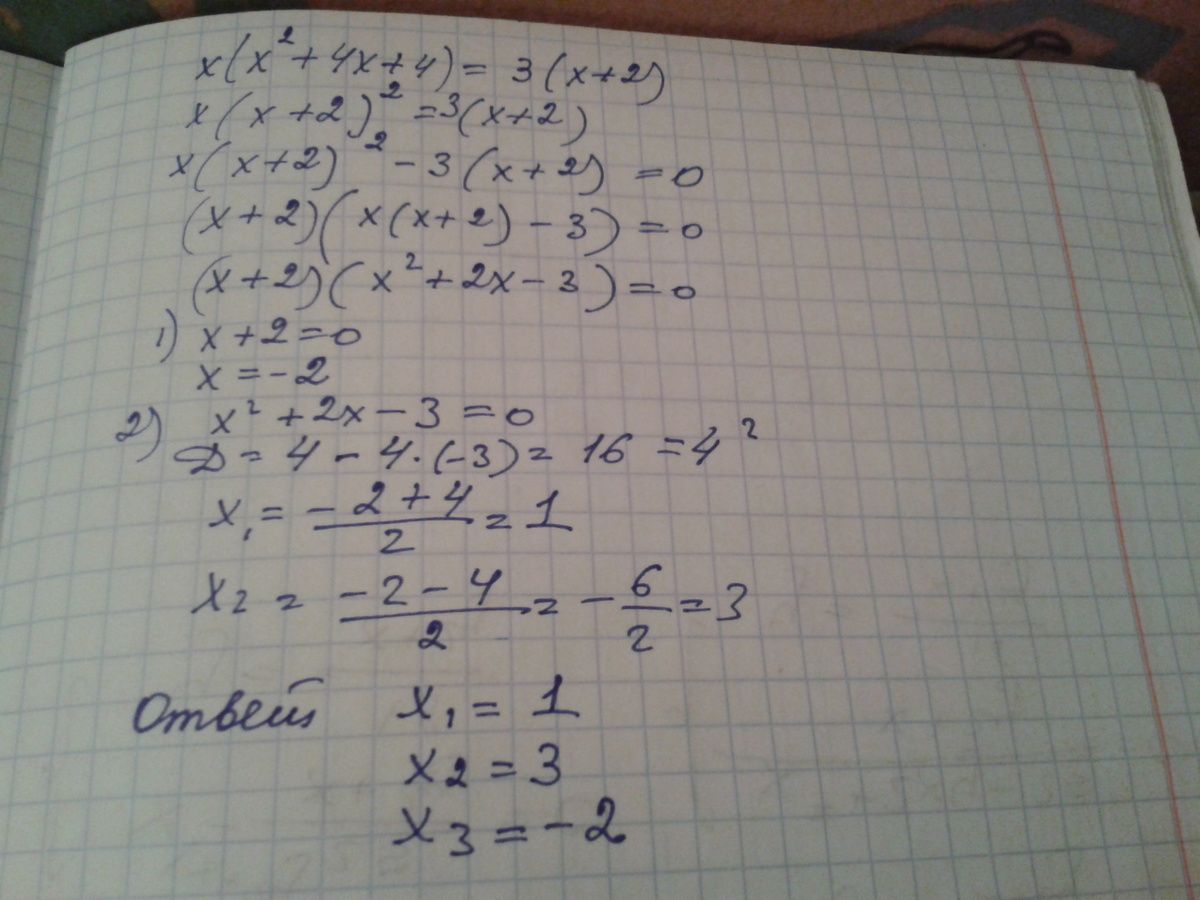 x(x² + 4x + 4) = 3(x+2)
x(x+2)² = 3(x+2)
x(x+2)² - 3(x+2) = 0
(x+2)(x(x+2) - 3) = 0
(x+2)(x² + 2x - 3) = 0
1) x + 2 = 0
x = -2
2) x² + 2x - 3 = 0
D = 4 - 4·(-3) = 16 = 4²
x₁ = (-2+4)/2 = 1
x₂ = (-2-4)/2 = -6/2 = 3
Ответ x₁ = 1
x₂ = 3
x₃ = -2